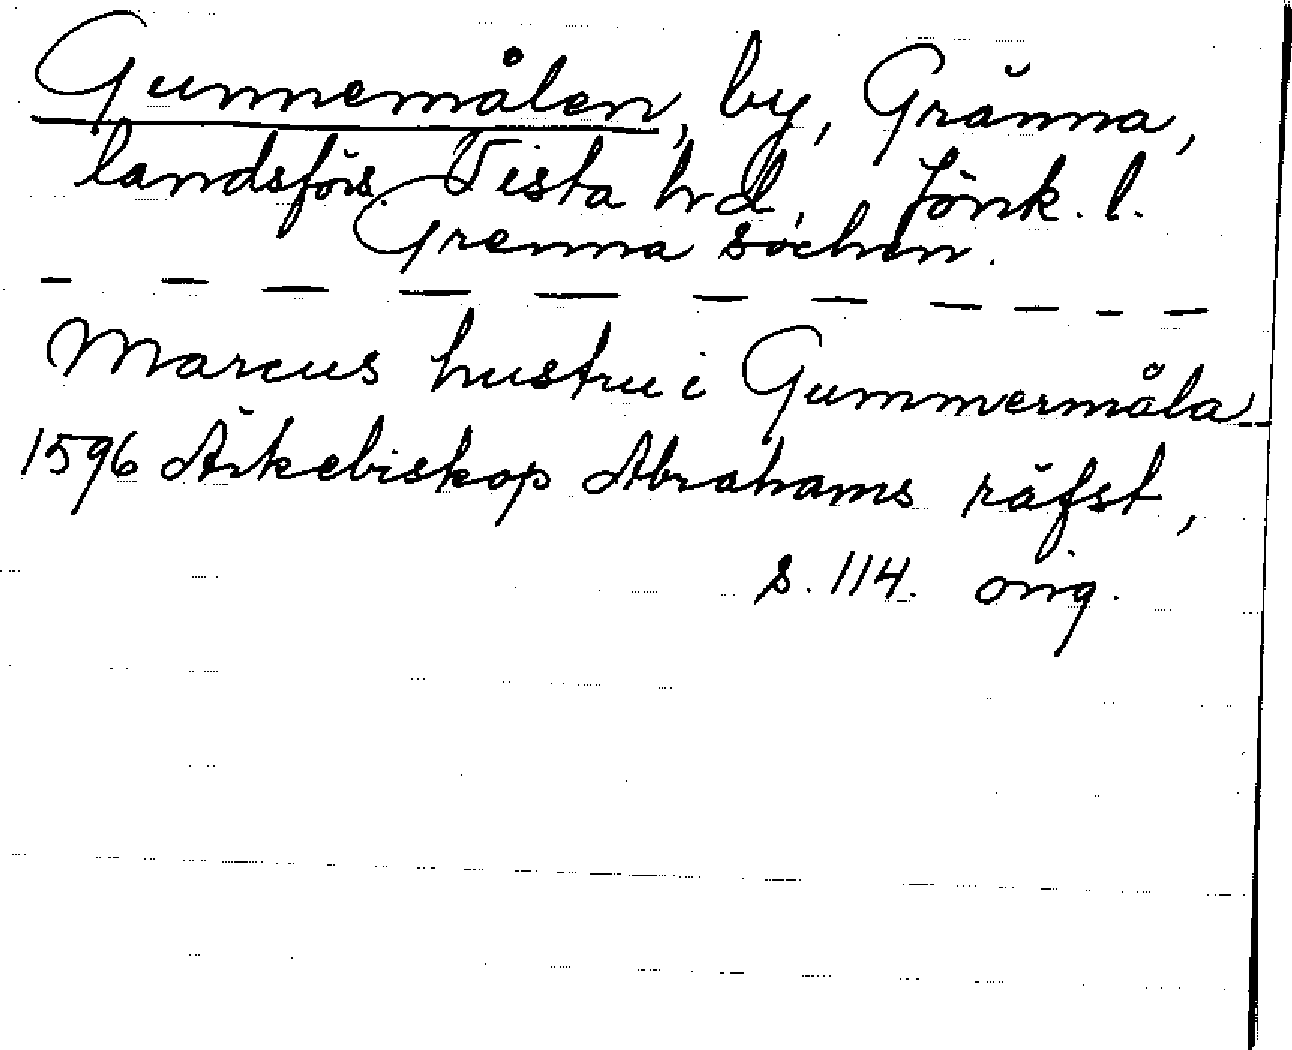 Gunnemålen, by, Gränna,
landsförs. Vista hrd, Jönk. l.
Grenna sochen.
Marcus hustru i Gummermåla
1596 Ärkebiskop Abrahams räfst,
s. 114. orig.